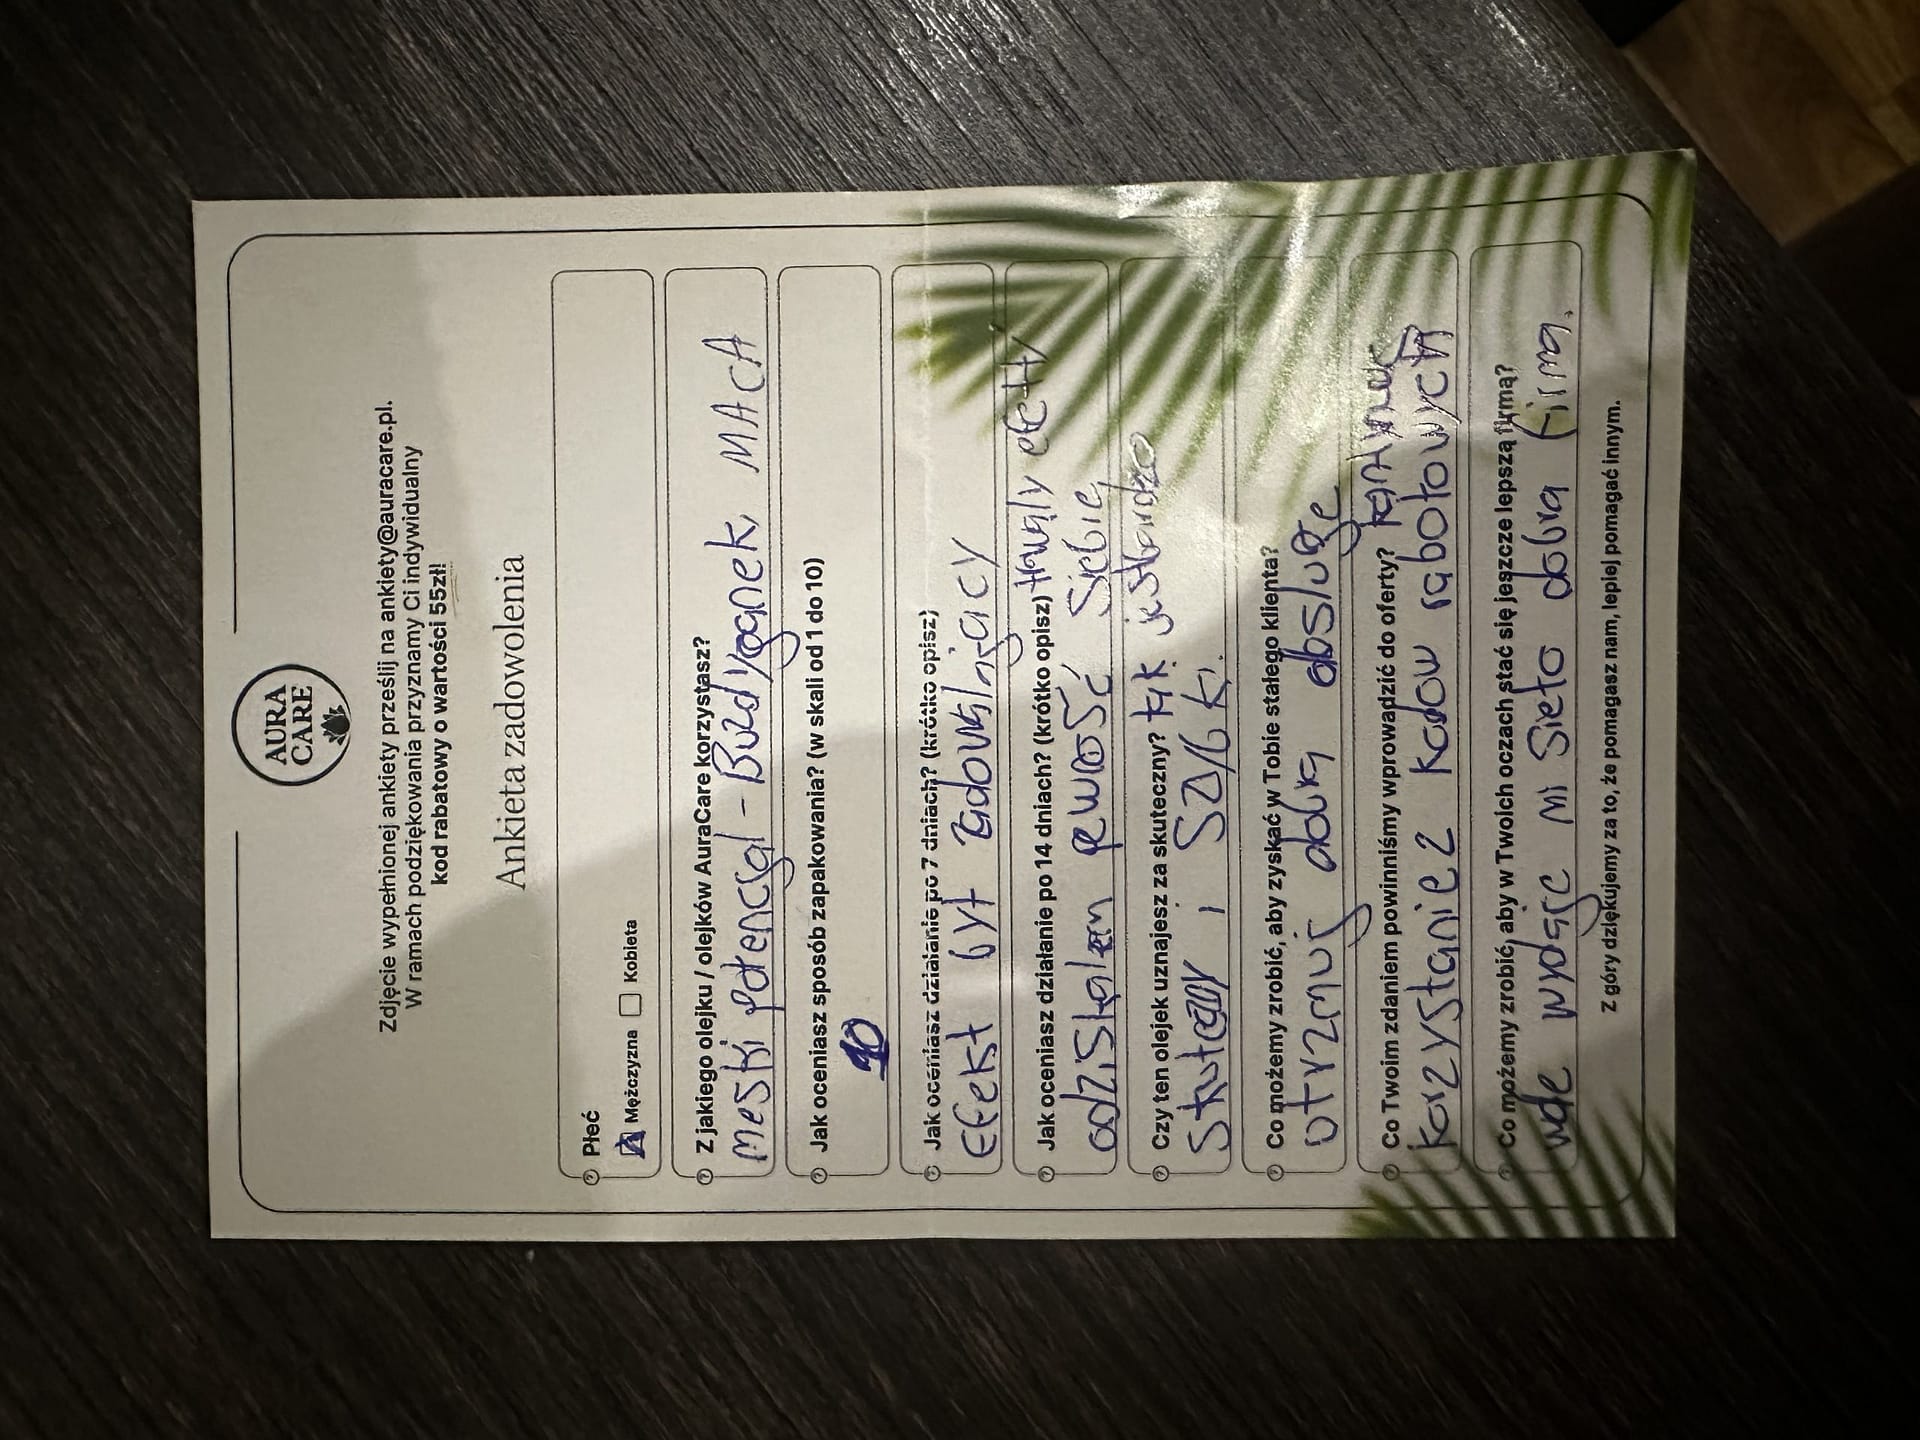 AURA
CARE
Zdjęcie wypełnionej ankiety prześlij na ankiety@auracare.pl.
W ramach podziękowania przyznamy Ci indywidualny
kod rabatowy o wartości 55zł!
Ankieta zadowolenia
Płeć
Mężczyzna Kobieta
Z jakiego olejku / olejków AuraCare korzystasz?
męski potencjał - Buzdyganek, MACA
Jak oceniasz sposób zapakowania? (w skali od 1 do 10)
10
Jak oceniasz działanie po 7 dniach? (krótko opisz)
Efekt był
Jak oceniasz działanie po 14 dniach? (krótko opisz) trwały
odziskałem pewność siebie
Czy ten olejek uznajesz za skuteczny? tak jest bardzo
i
Co możemy zrobić, aby zyskać w Tobie stałego klienta?
dobrą obsługe
Co Twoim zdaniem powinniśmy wprowadzić do oferty?
korzystanie z kodow rabotowych
Co możemy zrobić, aby w Twoich oczach stać się jeszcze lepszą firmą?
wydaje mi sieto dobra firma.
Z góry dziękujemy za to, że pomagasz nam, lepiej pomagać innym.